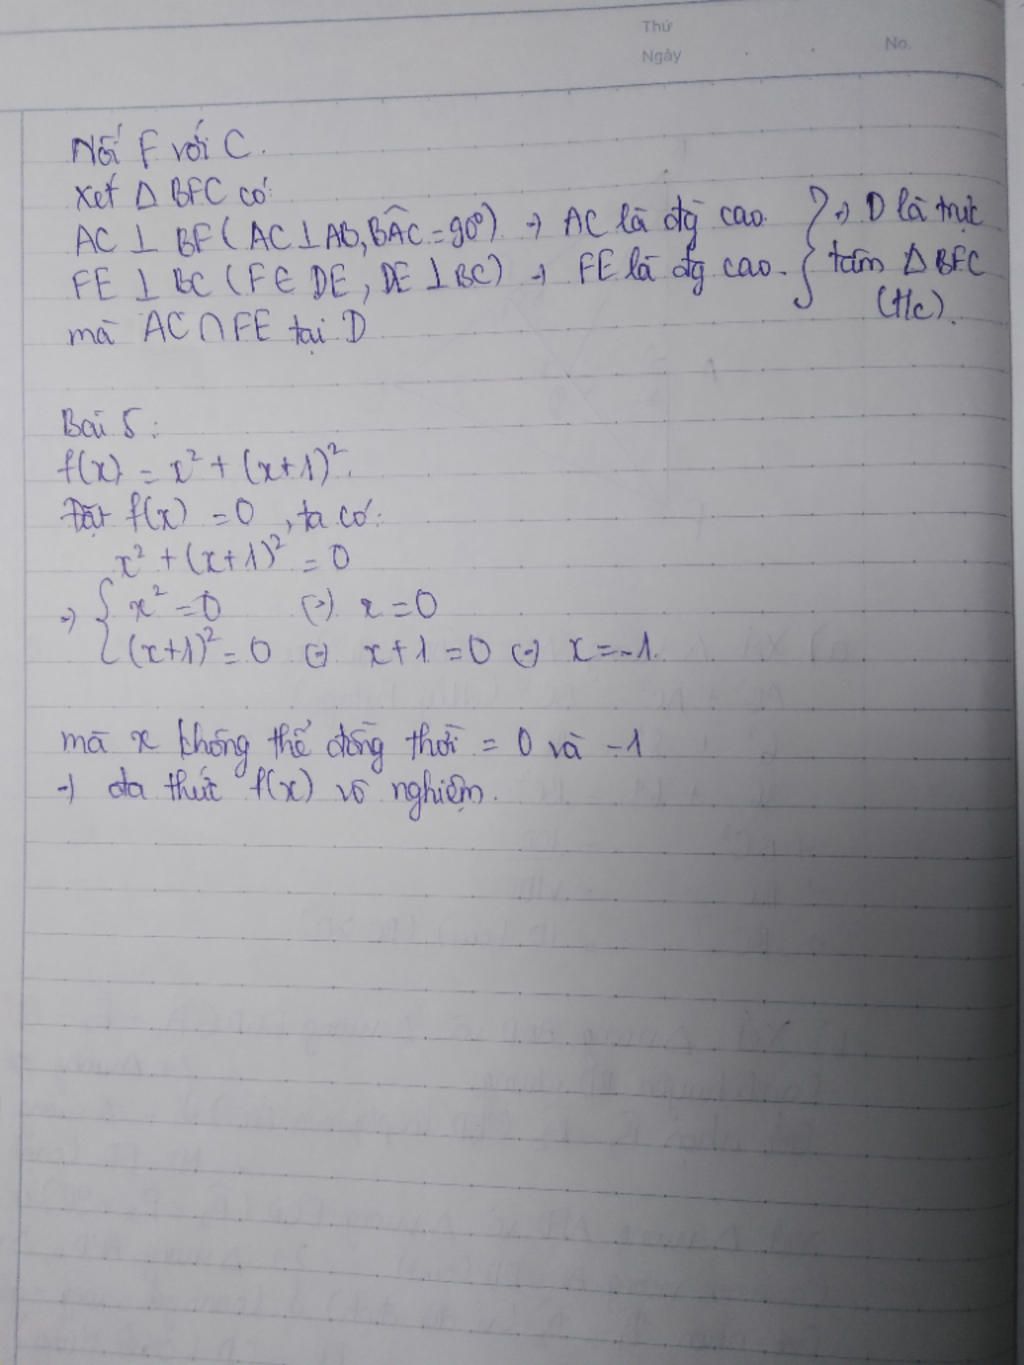 Thứ
Ngày
No.
Nối F với C.
Xét Δ BFC có:
AC ⊥ BF (AC ⊥ AB, BÂC = 90°) → AC là đg cao } → D là trực
FE ⊥ BC (F ∈ DE, DE ⊥ BC) → FE là đg cao. tâm Δ BFC
mà AC ∩ FE tại D (t/c).
Bài 5:
f(x) = x² + (x+1)².
Đặt f(x) = 0, ta có:
x² + (x+1)² = 0
→ { x² = 0 (→) x = 0
(x+1)² = 0 (→) x+1 = 0 (→) x = -1.
mà x không thể đồng thời = 0 và -1
→ đa thức f(x) vô nghiệm.